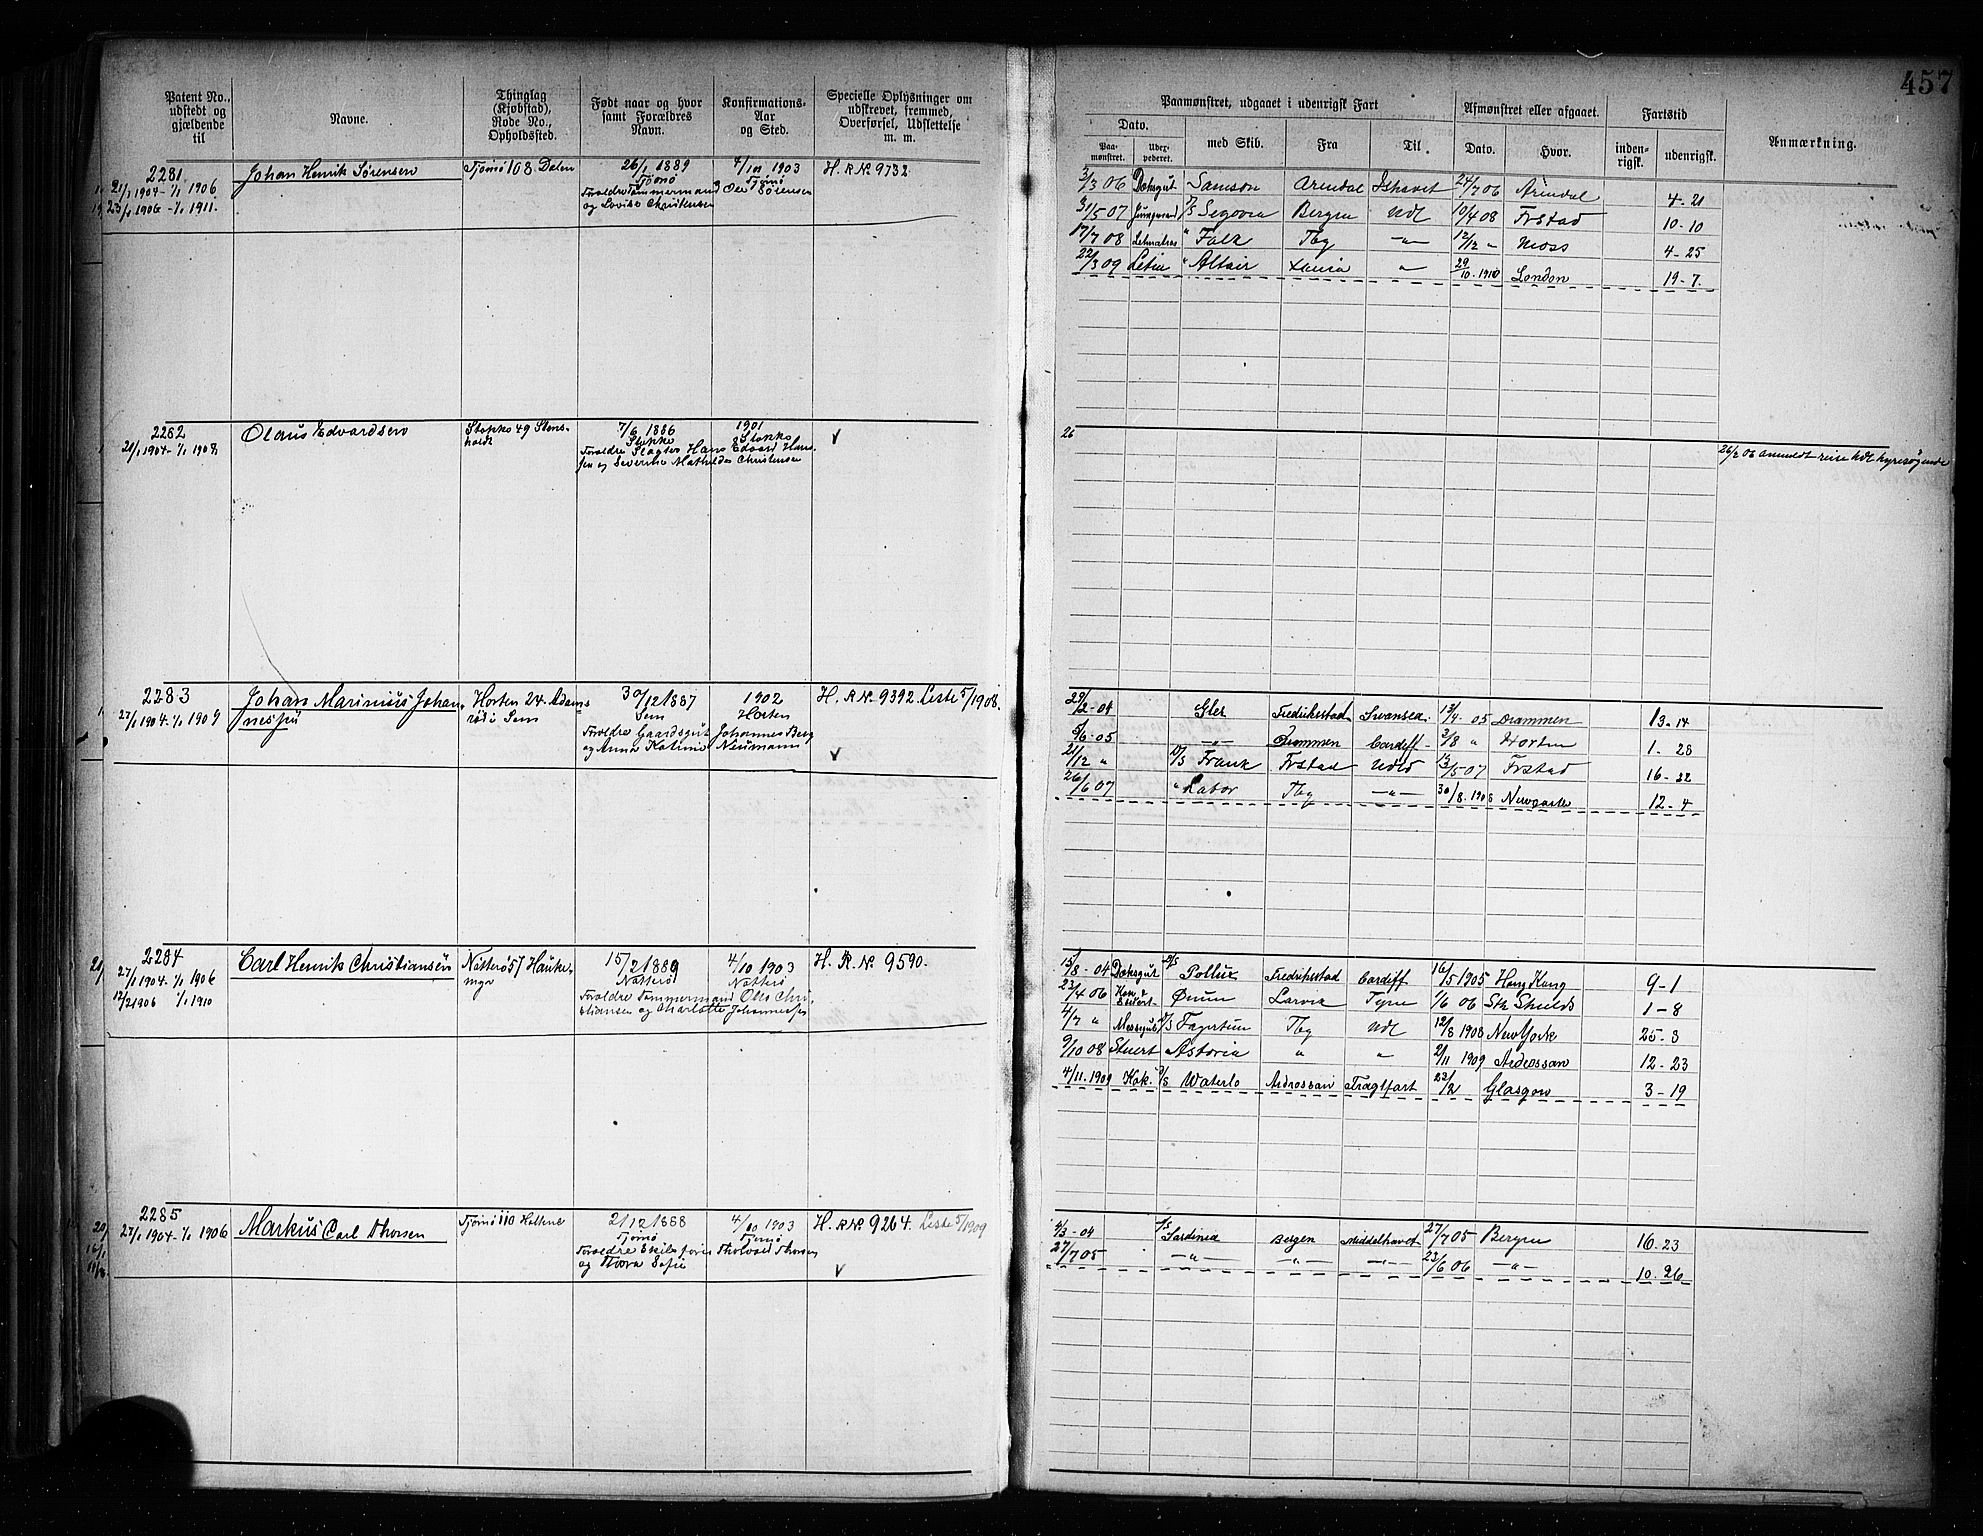 457
Patent No., udstedt og gjældende til
Navne.
Thinglag (Kjøbstad), Rode No., Opholdssted.
Født naar og hvor samt Forældres Navn.
Konfirmations-Aar og Sted.
Specielle Oplysninger om udskrevet, fremmed, Overførsel, Udslettelse m. m.
Paamønstret, udgaaet i udenrigsk Fart
Afmønstret eller afgaaet.
Fartstid
Anmærkning.
Dato.
med Skib.
Fra
Til
Dato.
Hvor.
inden-rigsk.
udenrigsk.
Paa-mønstret.
2281
Johan Henrik Sørensen
Tjømö 108 Dalen
26/1 1889
4/10 1903
H. R N. 9732
21/1 1904 - 1/1 1906
Tjømö
Tjømö
23/1 1906 - 1/1 1911.
Forældre Tømmermand Ole Sørensen
og Lovise Christensen
3/3 06 Dæksgut Samson Arendal Ishavet 24/7 06 Arendal 4-21
31/5 07 Jungmand D/S Segovia Bergen Udl 10/4 08 Frstad 10-10
17/7 08 Letmatros " Falk Tbg -"- 12/12 " Moss 4-25
22/3 09 " Altair -"- 29/10-1910 London 19-7.
2282
Olaus Edvardsen
Stokke 49 Stens-
holt
7/6 1886
1901
21/1 1904 - 1/1 1908
Stokke
Stokke
Forældre Slagter Hans Edvard Han-
sen og Severine Mathilde Christensen
26
26/2 06 anmeldt reise Udl hyresøgende
2283
Johan Marinius Johan-
nessen
Horten 24. Adams-
rød i Sem
30/12 1887
1902
H. R N. 9392 Leste 5/1908.
27/1 1904 - 1/1 1909
Sem
Horten
Forældre Gaardsgut Johannes Berg
og Anna Katrine Neumann
29/2-04 Gler Fredrikstad Swansea. 13/4-05 Drammen 13-14
5/6-05 -"- Drammen Cardiff 2/8 " Horten 1-28
21/12 " D/S Frank Frstad Udld 13/5 07 Frstad 16-22
26/6 07 " Labor Tbg -"- 30/8-1908 Newcastle 12-4
2284
Carl Henrik Christiansen
Nøtterö 57 Hauke-
15/2 1889
4/10 1903
H. R. N. 9590.
27/1 1904 - 1/1 1906
Nøtterö
Nøtterö
12/2 1906 1/1 1910
Forældre Tømmermand Otto Chri-
stiansen og Charlotte Johannessen
15/8-04 Dæksgut D/S Pollux Fredrikstad Cardiff 16/5 1905 Hong Kong 9-1
23/4 06 Ørnen Larvik Tyne 1/6 06 Sth Shields 1-8
4/7 " Messegut D/S Fagertun Tbg Udl 12/8 1908 New York 25-3
9/10 08 Stuert " Astoria " " 2/11 1909 Ardrossan 12-23
4/11.1909 Kok. D/S Waterlo Ardrossan Fragtfart 23/2 Glasgow 3-19
2285
Markus Carl Thorsen
Tjømö 110 Holtene
21/2 1888
4/10 1903
H. R N. 9264. Leste 5/1909
27/1 1904 - 1/1 1906
Tjømö
Tjømö
Forældre Skibsfører Tholvald Thorsen
og Thora Sofie
4/3-04 D/S Sardinia Bergen Middelhavet 27/7 05 Bergen 16-23
27/7 05 -"- -"- -"- 23/6 06 -"- 10-26